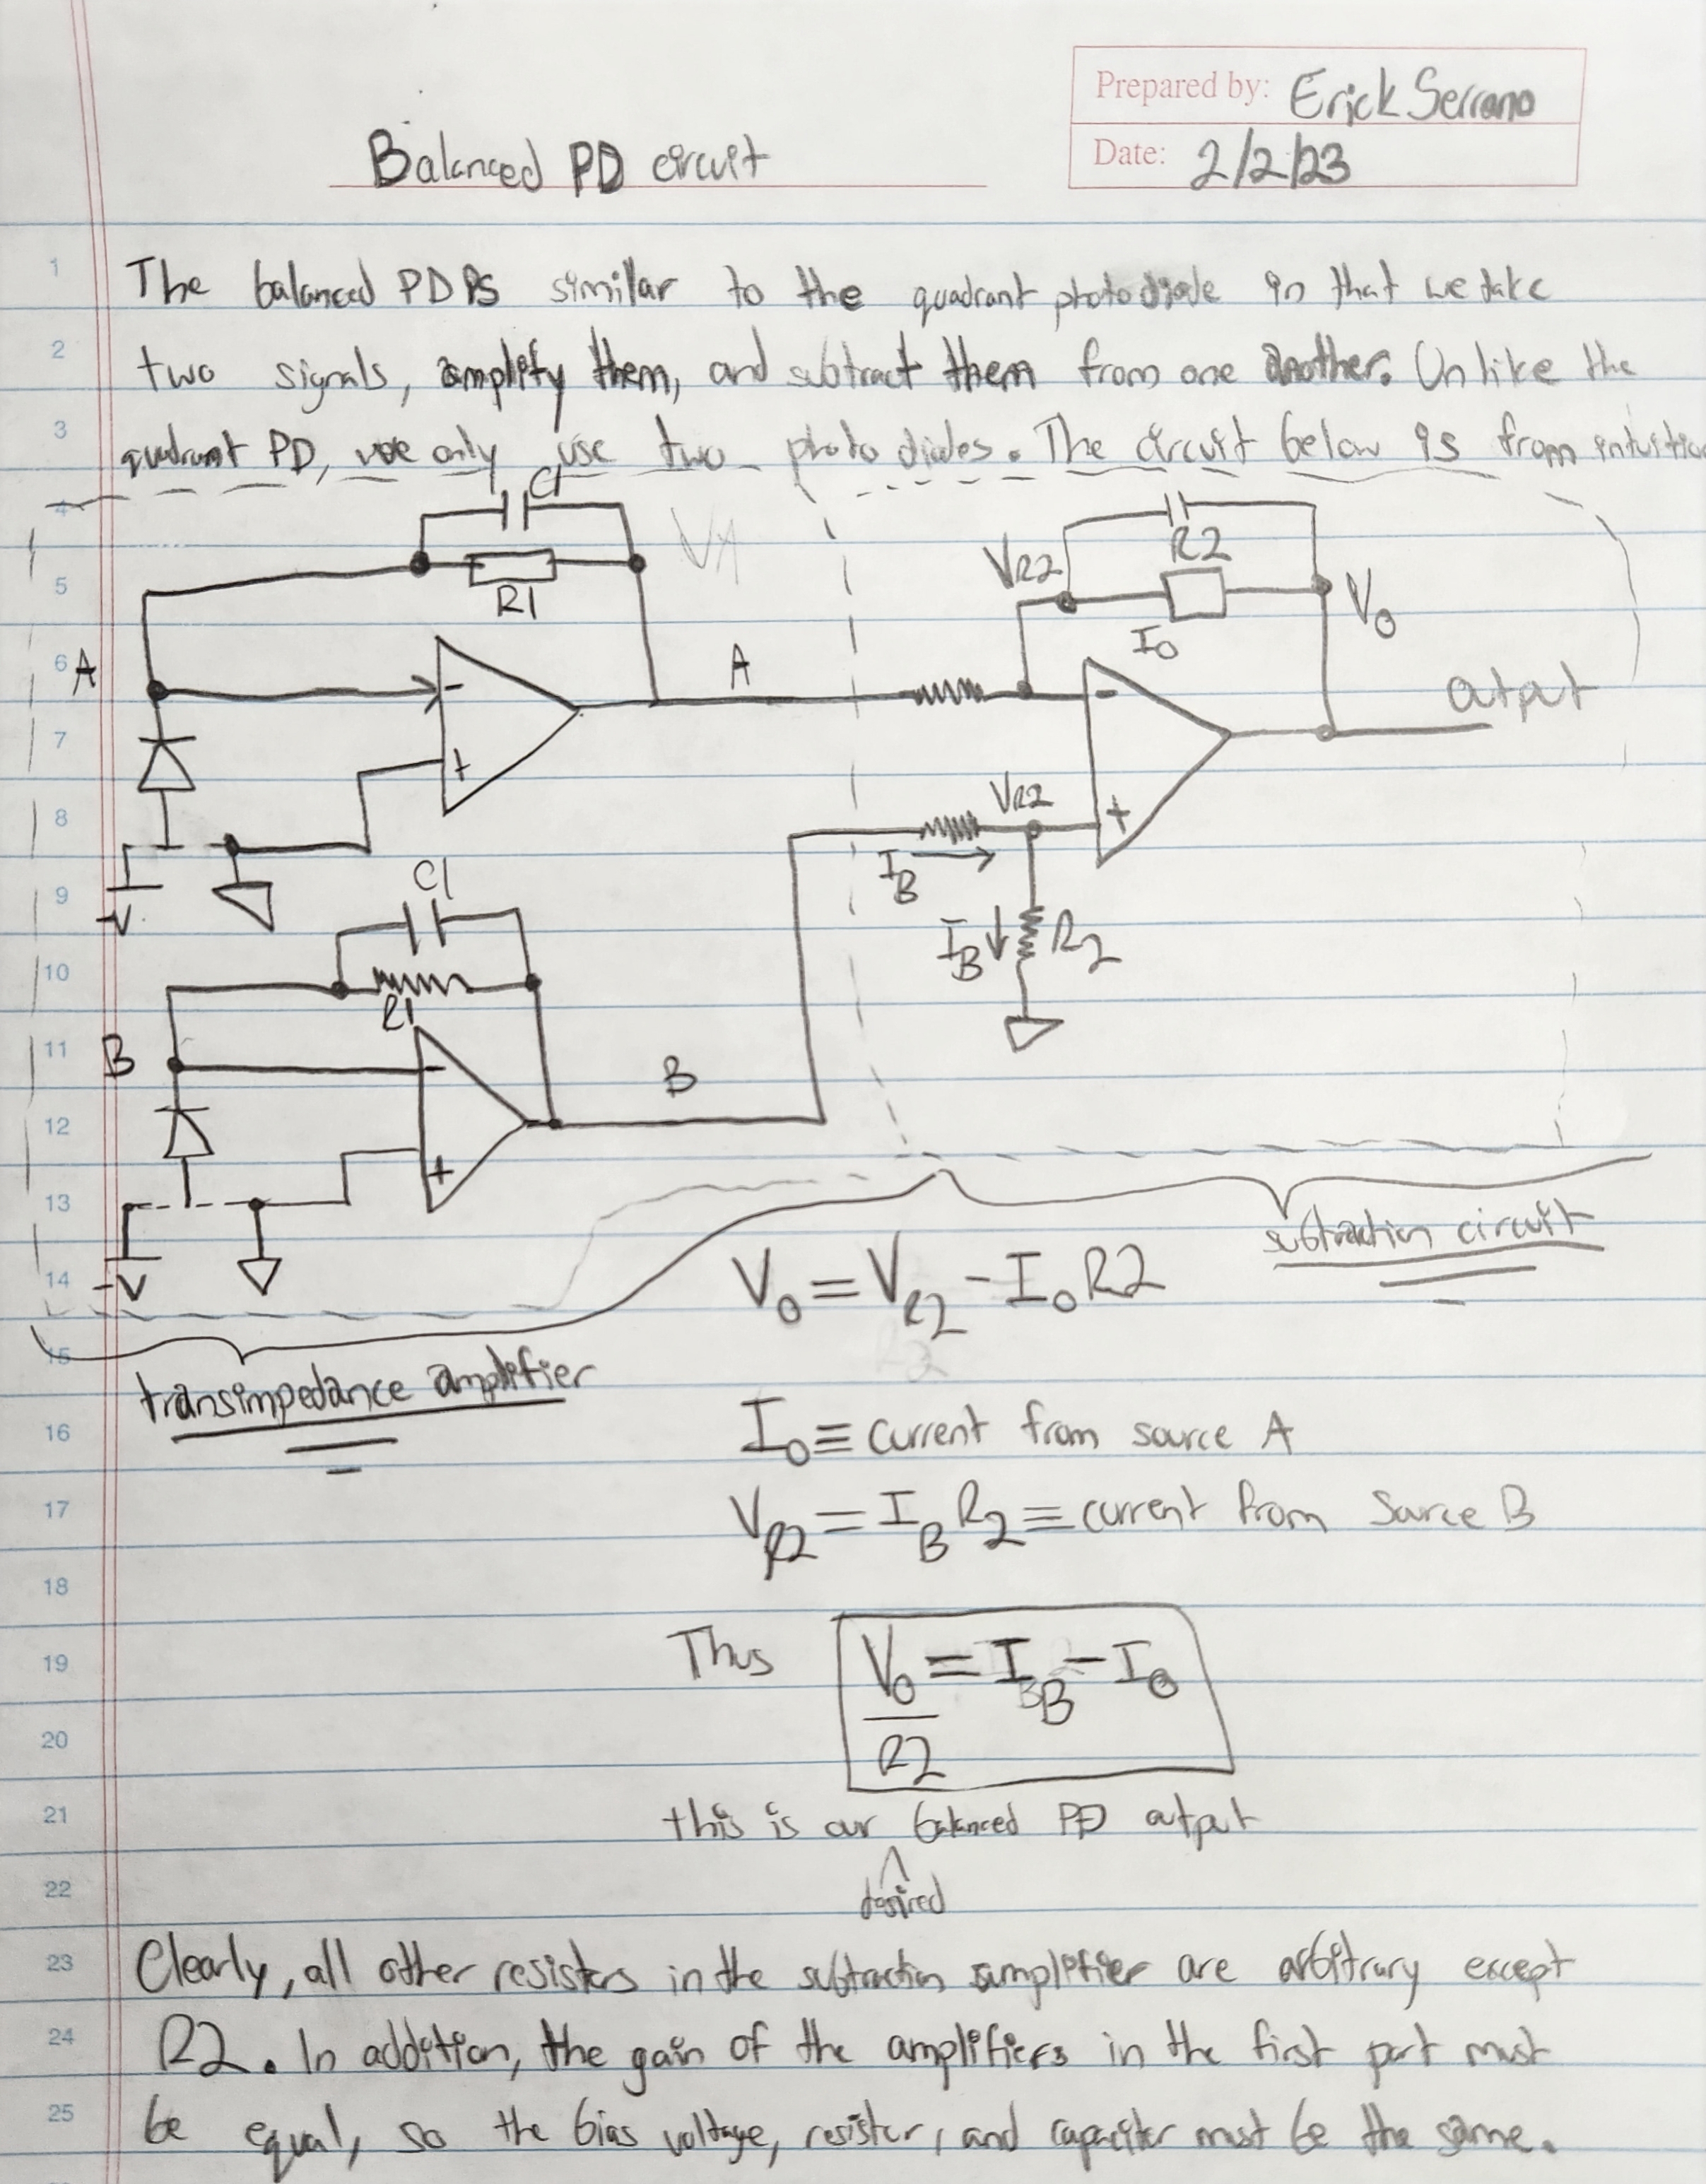 Prepared by: Erick Serrano
Date: 2/2/23
Balanced PD circuit
1 The balanced PD is similar to the quadrant photodiode in that we take
2 two signals, amplify them, and subtract them from one another. Unlike the
3 quadrant PD, we only use two photo diodes. The circuit below is from intuition
4
C1
VA
R2
VR2
5
R1
V0
I0
6
A
-
A
-
output
7
+
8
VR2
+
IB
9
C1
-V
IB
R2
10
R1
11
B
-
B
12
+
13
subtraction circuit
14
-V
V0 = VR2 - I0R2
15
transimpedance amplifier
16
I0 ≡ current from source A
17
VR2 = IB R2 ≡ current from source B
18
19
Thus V0/R2 = IB - I0
20
21
this is our balanced PD output
22
desired
23 Clearly, all other resistors in the subtraction amplifier are arbitrary except
24 R2. In addition, the gain of the amplifiers in the first part must
25 be equal, so the bias voltage, resistor, and capacitor must be the same.